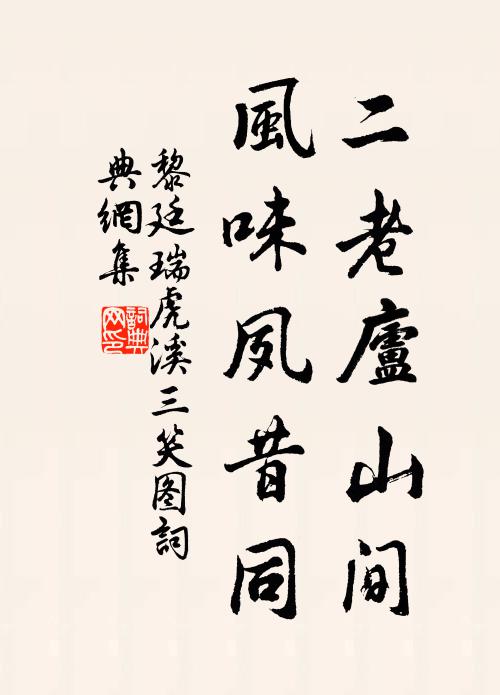 二老廬山间
風味夙昔同
黎廷瑞虎溪三笑图詞
典網集
詞典网印